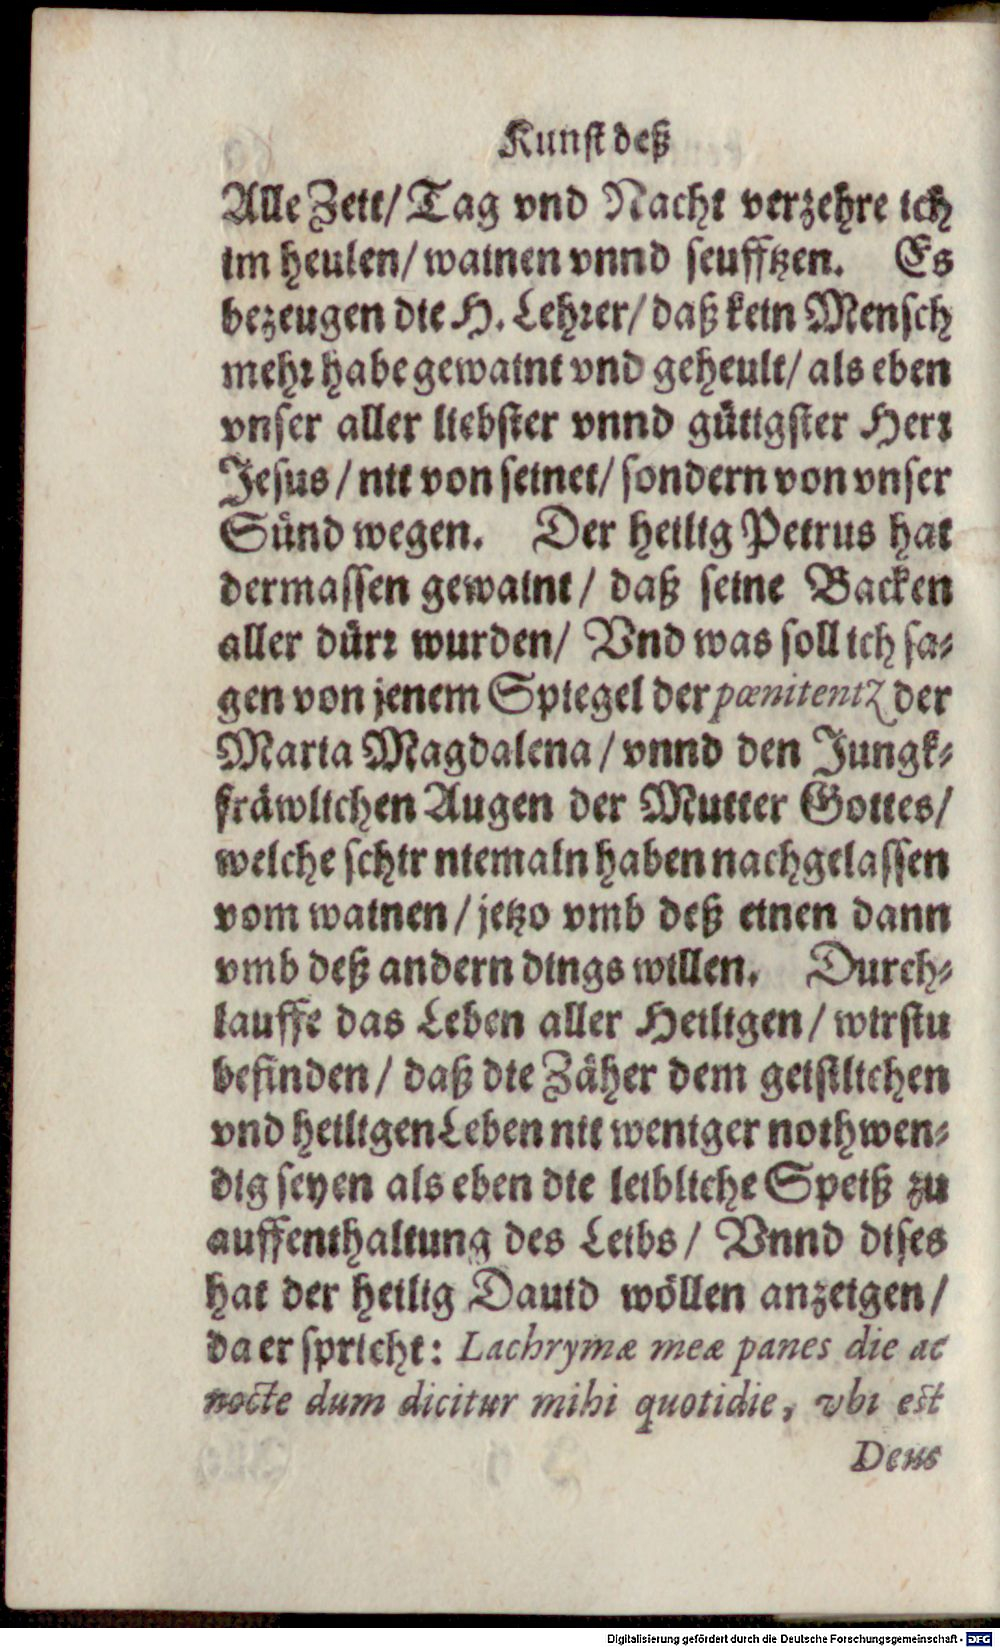 Kunst deß
Alle Zeit/ Tag vnd Nacht verzehre ich
im heulen/ wainen vnnd seufftzen. Es
bezeugen die H. Lehrer/ daß kein Mensch
mehr habe gewaint vnd geheult/ als eben
vnser aller liebster vnnd gütigster Herr
Jesus/ nit von seinet/ sondern von vnser
Sünd wegen. Der heilig Petrus hat
dermassen gewaint/ daß seine Backen
aller dürr wurden/ Vnd was soll ich sa-
gen von jenem Spiegel der pœnitentz der
Maria Magdalena/ vnnd den Jungk-
fräwlichen Augen der Mutter Gottes/
welche schir niemaln haben nachgelassen
vom wainen/ jetzo vmb deß einen dann
vmb deß andern dings willen. Durch-
lauffe das Leben aller Heiligen/ wirstu
befinden/ daß die Zäher dem geistlichen
vnd heiligen Leben nit weniger nothwen-
dig seyen als eben die leibliche Speiß zu
auffenthaltung des Leibs/ Vnnd dises
hat der heilig Dauid wöllen anzeigen/
da er spricht: Lachrymæ meæ panes die ac
nocte dum dicitur mihi quotidie, vbi est
Deus
Digitalisierung gefördert durch die Deutsche Forschungsgemeinschaft - DFG